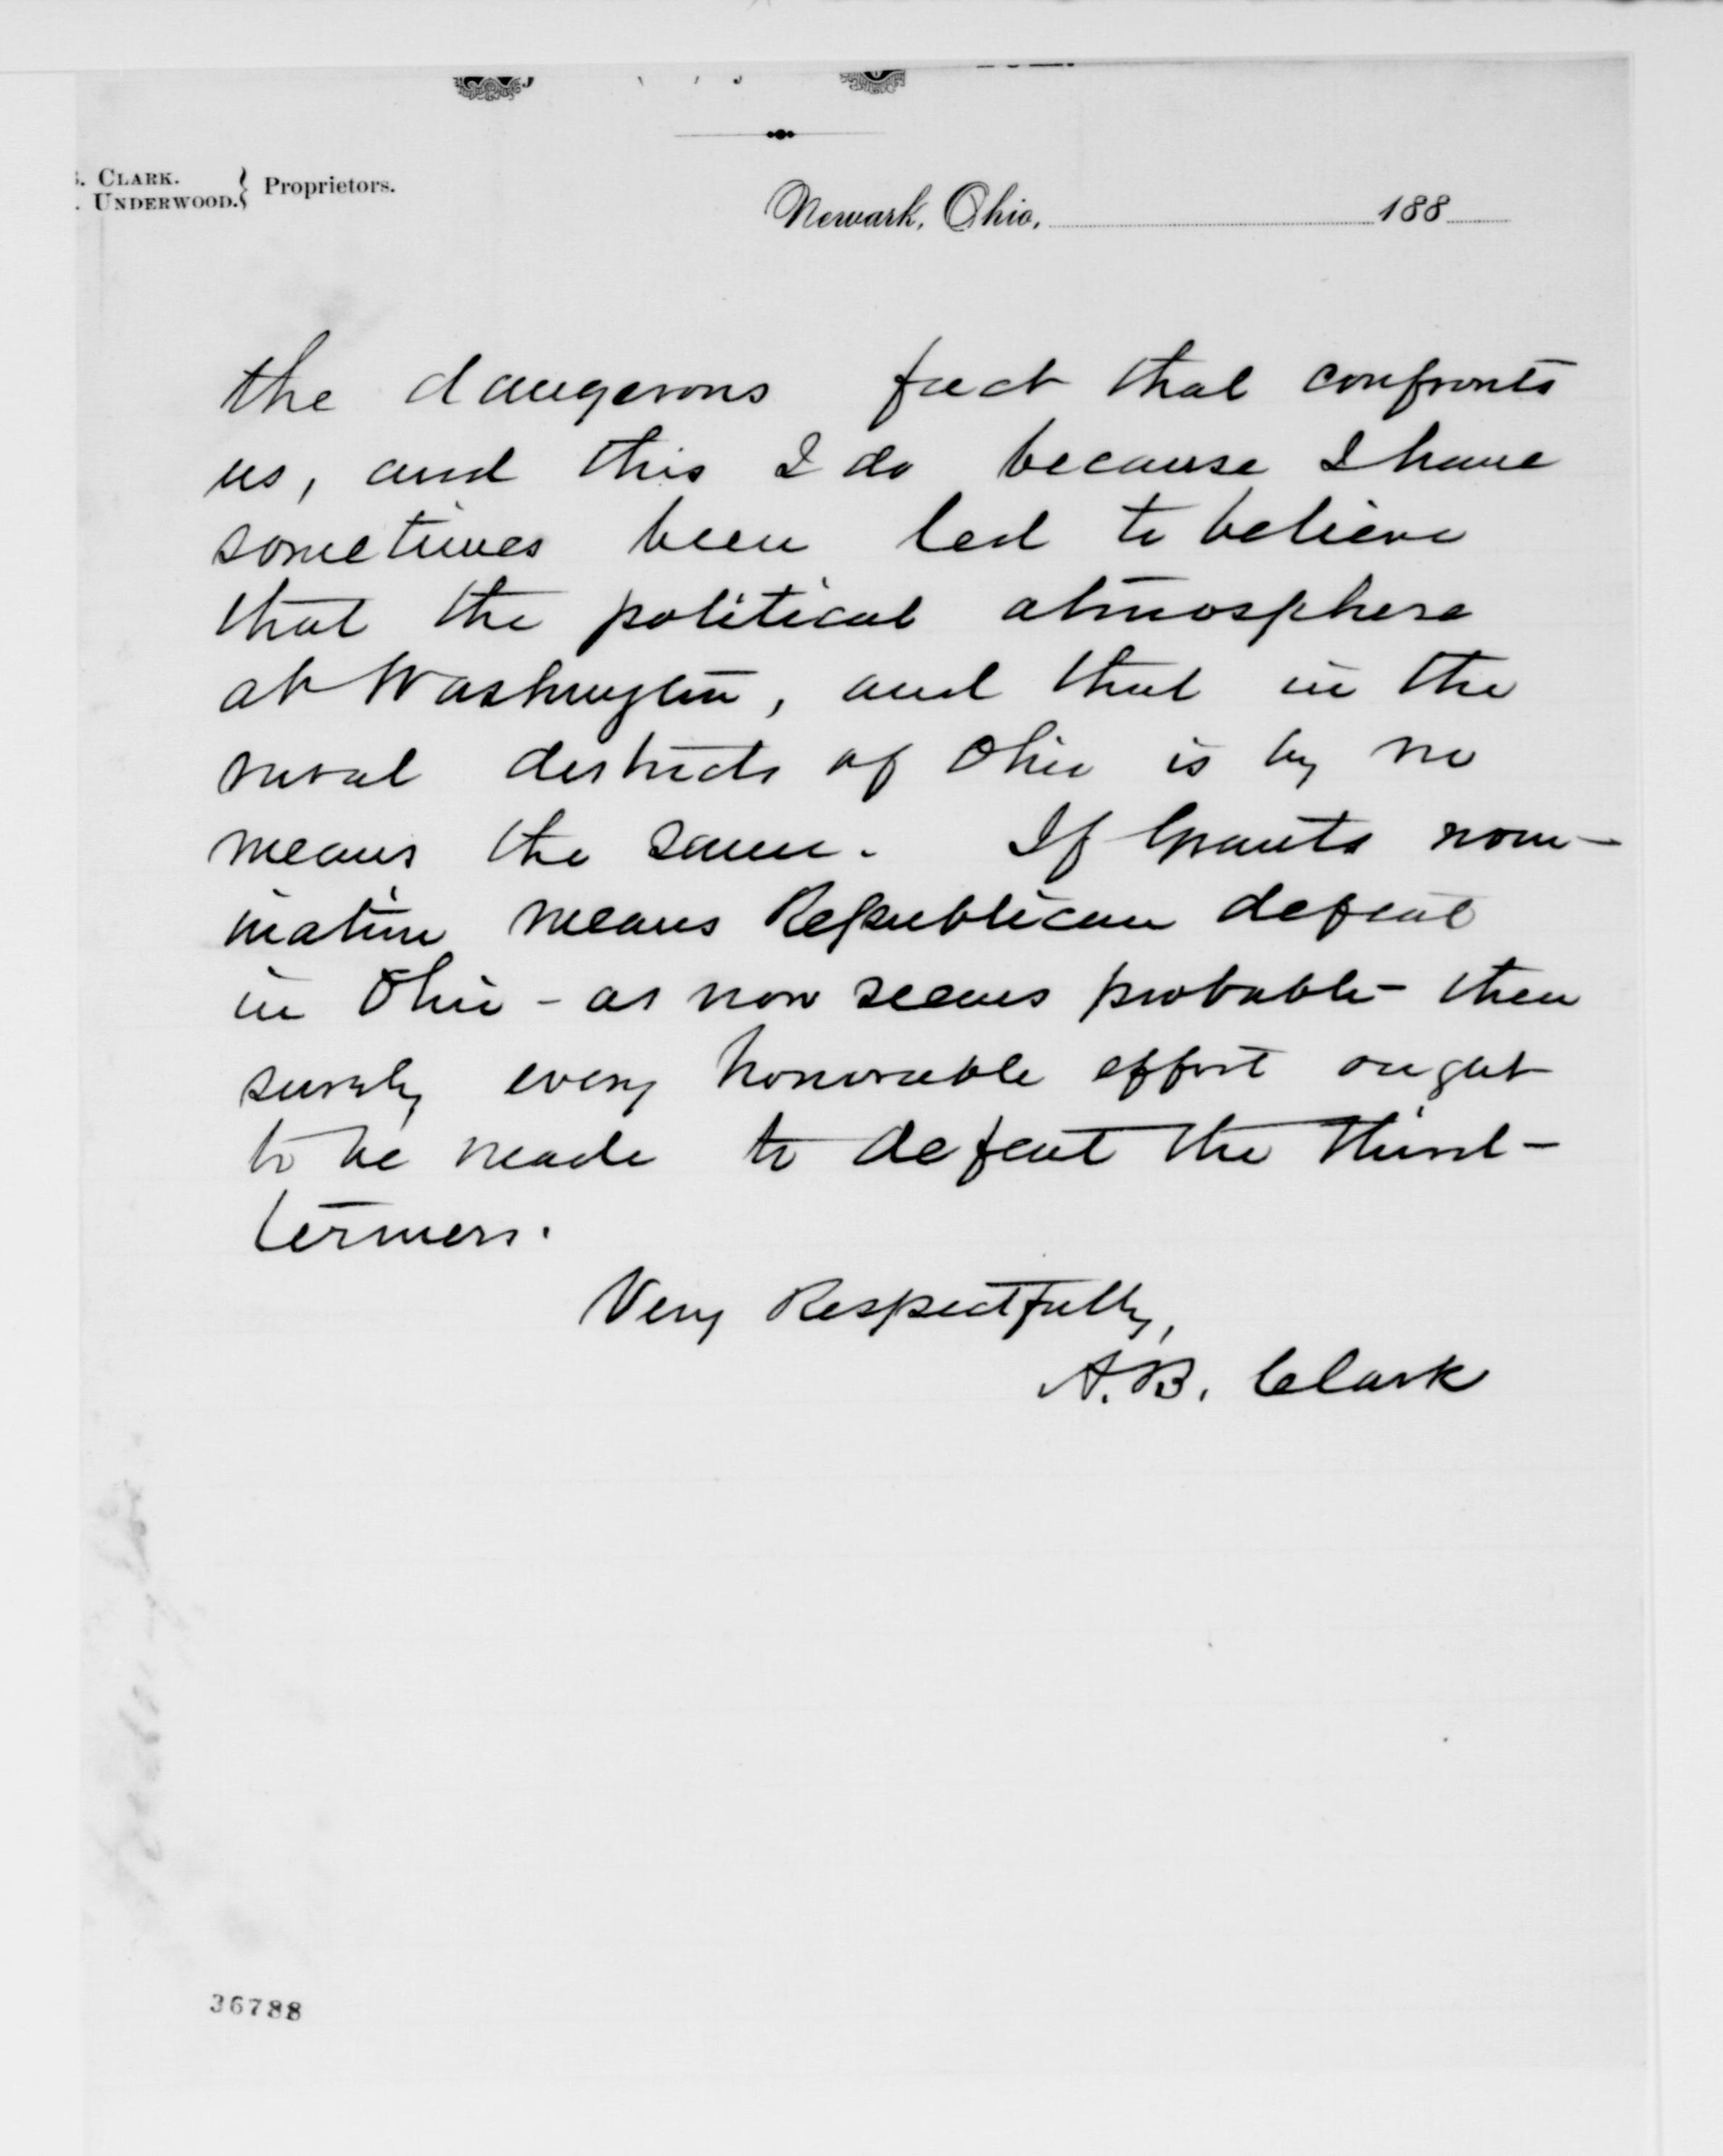 . CLARK.
. UNDERWOOD. } Proprietors.
Newark, Ohio, 188
the dangerous fact that confronts
us, and this I do because I have
sometimes been led to believe
that the political atmosphere
at Washington, and that in the
rural districts of Ohio is by no
means the same. If Grants nom-
ination means Republican defeat
in Ohio - as now seems probable - then
surely every honorable effort ought
to be made to defeat the third-
termers.
Very Respectfully,
A. B. Clark
36788